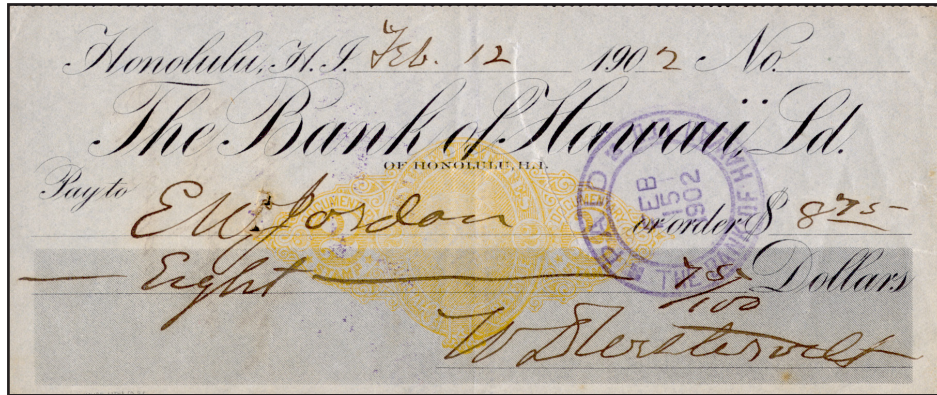 Honolulu, H.I. Feb. 12 1902 No.
The Bank of Hawaii, Ld.
OF HONOLULU, H.I.
Pay to
E W Jordan or order $ 8 75
Eight 75/100 Dollars
W D Westervelt
PAID
FEB
15
1902
THE BANK OF HAWAII